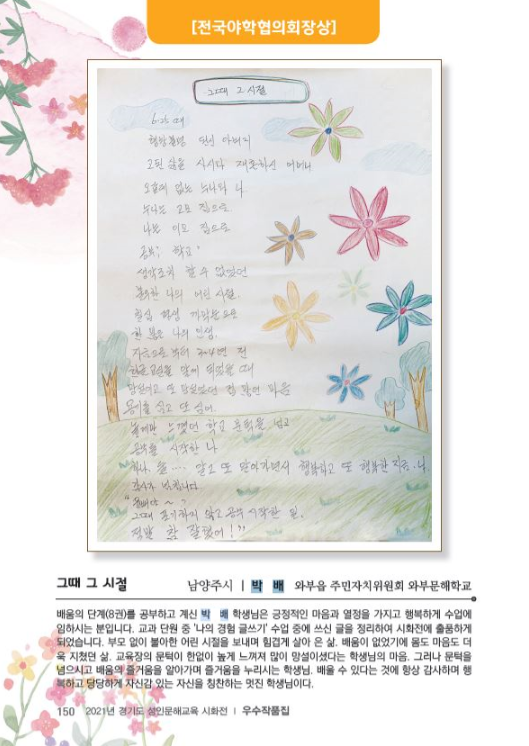 [전국야학협의회장상]
그때 그 시절
6·25 때
행방불명 되신 아버지
고된 삶을 사시다 재혼하신 어머니
오갈데 없는 누나와 나
누나는 고모 집으로
나는 이모 집으로
공부, 학교
생각조차 할 수 없었던
불우한 나의 어린 시절
한 많은 나의 인생
지금으로부터 전
또 또 많던 마음
용기를 내고 또 내어
높게만 느꼈던 학교 문턱을 넘고
공부를 시작한 나
하나, 둘 .... 알고 또 알아가면서 행복하고 또 행복한 지금, 나
감사가 넘칩니다
그때 포기하지 않고 공부 시작한 일,
정말 참 잘했어!"
그때 그 시절 남양주시 | 박 배 와부읍 주민자치위원회 와부문해학교
배움의 단계(8권)를 공부하고 계신 박 배 학생님은 긍정적인 마음과 열정을 가지고 행복하게 수업에
임하시는 분입니다. 교과 단원 중 '나의 경험 글쓰기' 수업 중에 쓰신 글을 정리하여 시화전에 출품하게
되었습니다. 부모 없이 불아한 어린 시절을 보내며 힘겹게 살아 온 삶. 배움이 없었기에 몸도 마음도 더
욱 지쳤던 삶. 교육장의 문턱이 한없이 높게 느껴져 많이 망설이셨다는 학생님의 마음. 그러나 문턱을
넘으시고 배움의 즐거움을 알아가며 즐거움을 누리시는 학생님. 배울 수 있다는 것에 항상 감사하며 행
복하고 당당하게 자신감 있는 자신을 칭찬하는 멋진 학생님이다.
150 2021년 경기도 성인문해교육 시화전 | 우수작품집